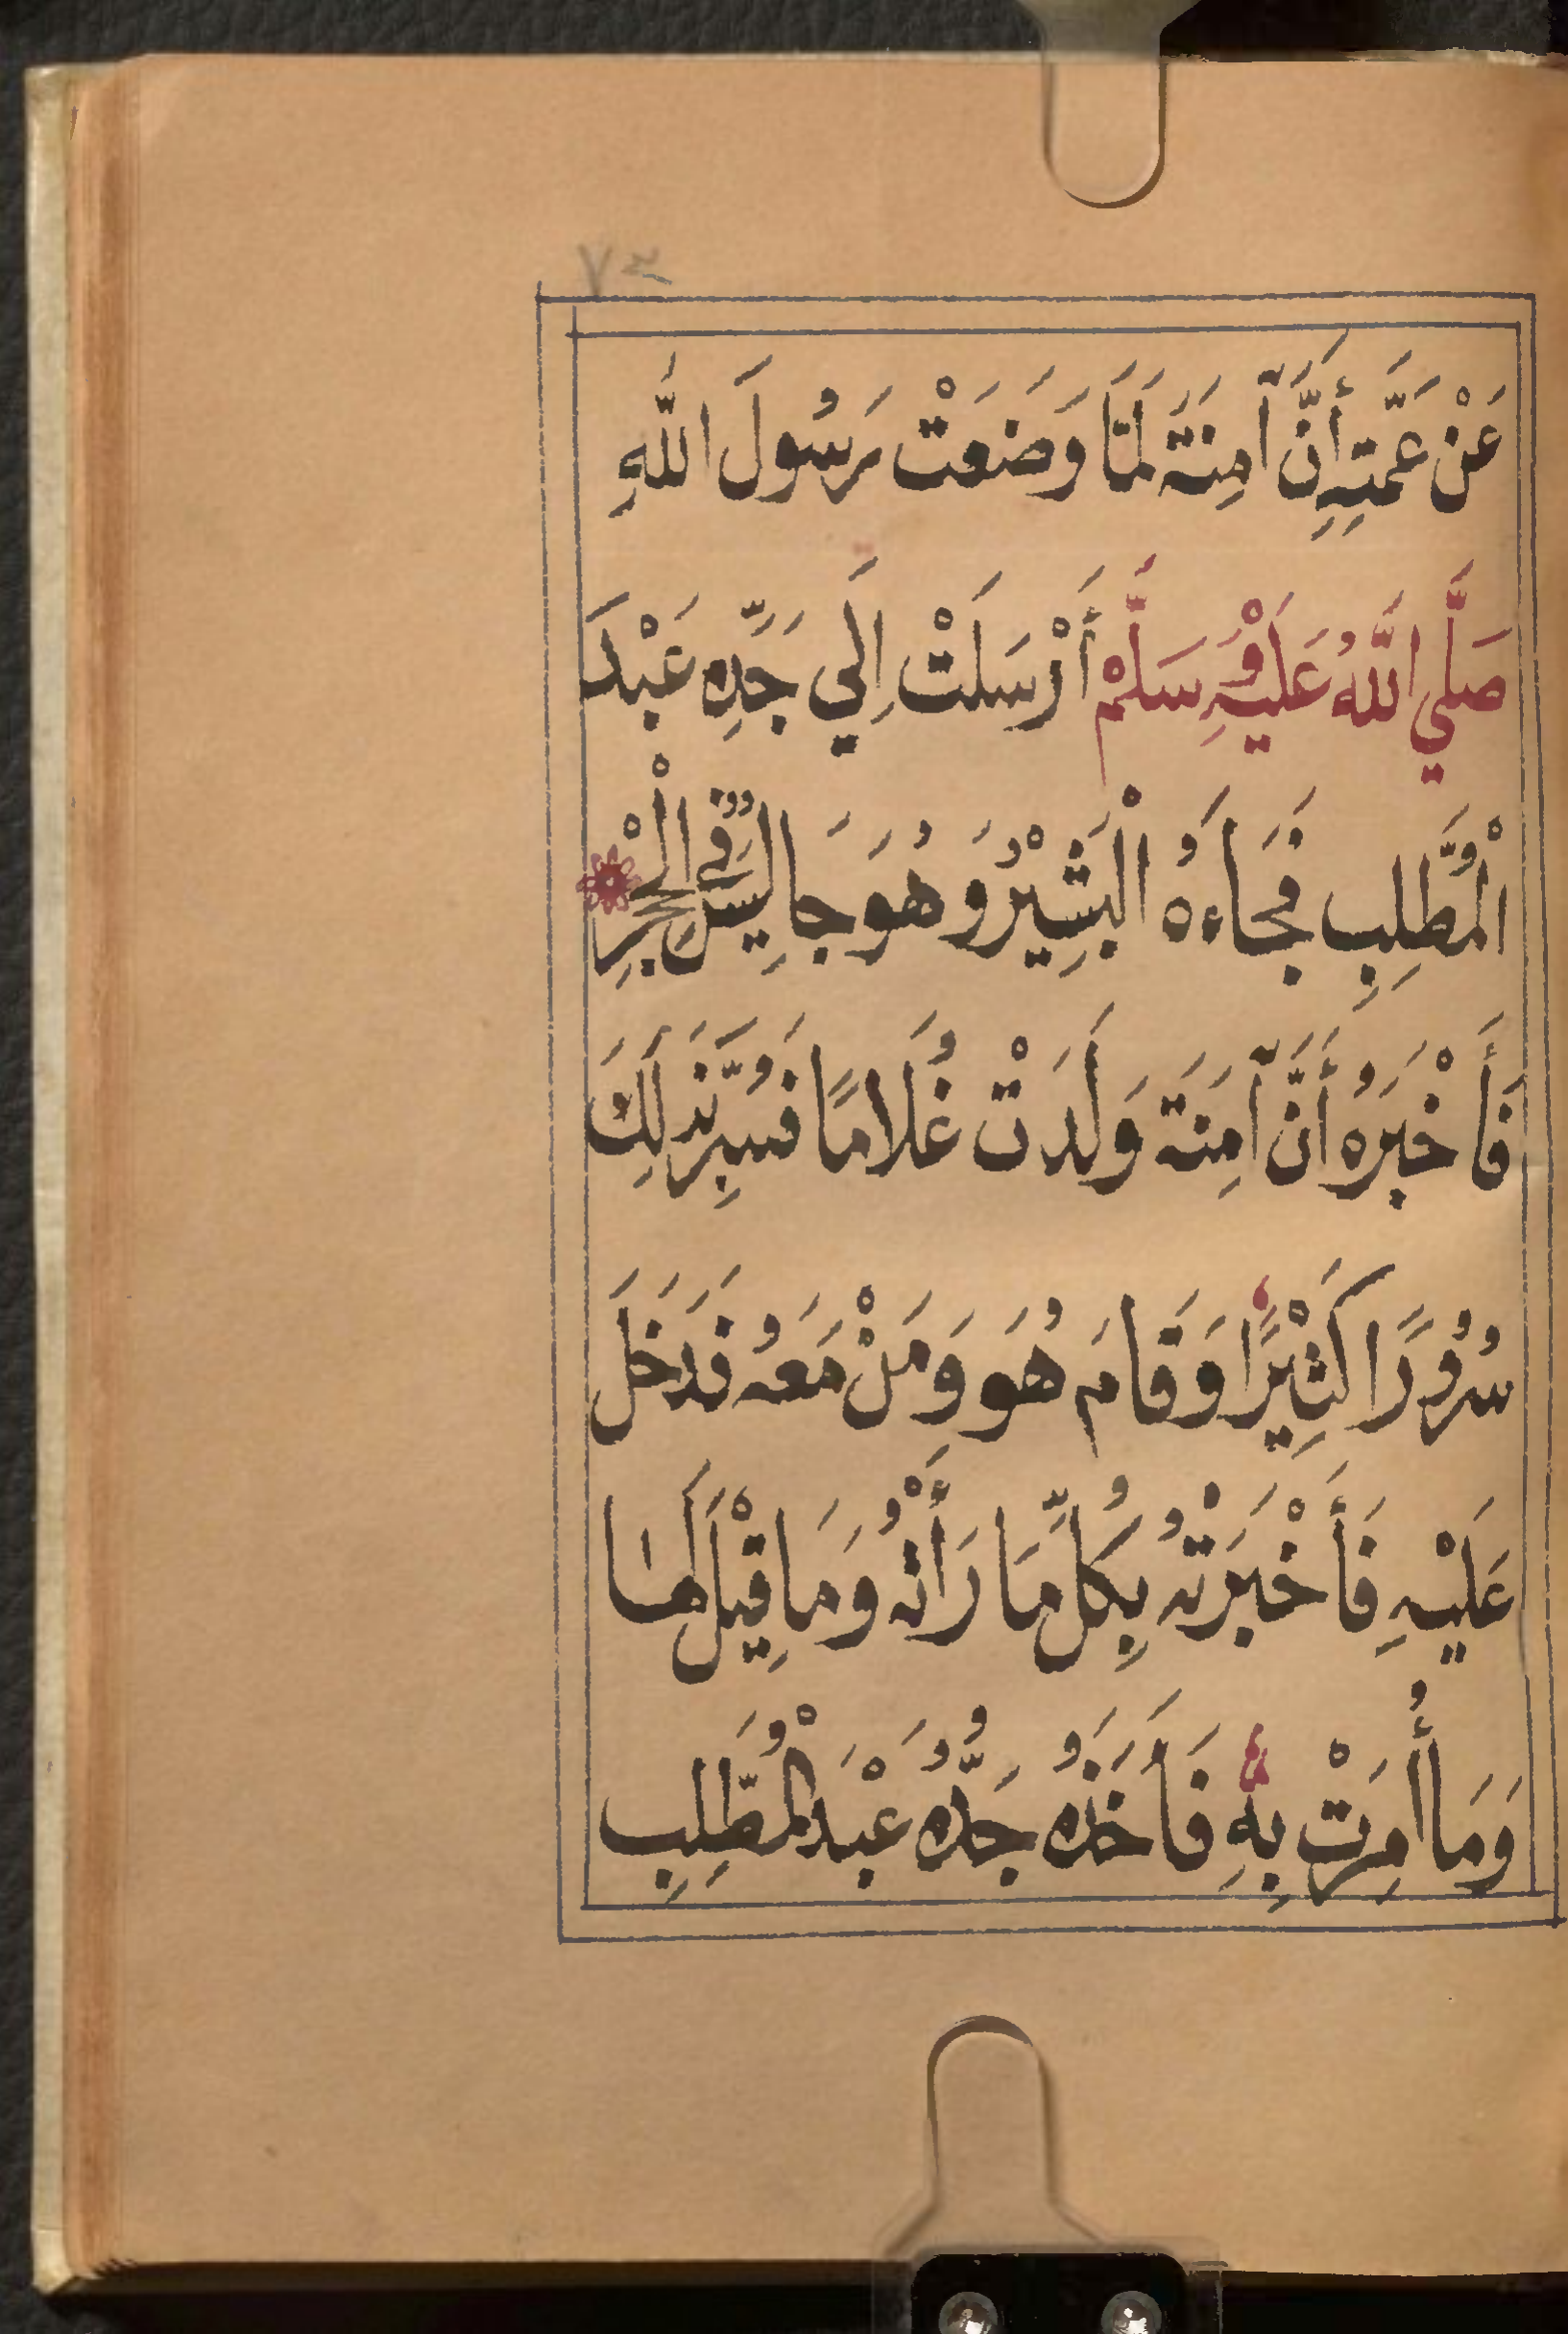 ٧٣
عَنْ عَمَّتِهِ أَنَّ آمِنَةَ لَمَّا وَضَعَتْ رَسُولَ اللَّهِ
صَلَّي اللَّهُ عَلَيْهِ وَسَلَّمْ أَرْسَلَتْ إِلَي جَدِّهِ عَبْدَ
الْمُطَّلِبِ فَجَاءَهُ الْبَشِيْرُ وَهُوَ جَالِسٌ فِي الْحِجْرِ
فَأَخْبَرَهُ أَنَّ آمِنَةَ وَلَدَتْ غُلَامًا فَسُرَّ بِذَلِكَ
سُرُورًا كَثِيْرًا وَقَامَ هُوَ وَمَنْ مَعَهُ فَدَخَلَ
عَلَيْهِ فَأَخْبَرَتْهُ بِكُلِّ مَا رَأَتْهُ وَمَا قِيْلَ لَهَا
وَمَا أُمِرَتْ بِهِ فَأَخَذَهُ جَدُّهُ عَبْدَ الْمُطَّلِبِ